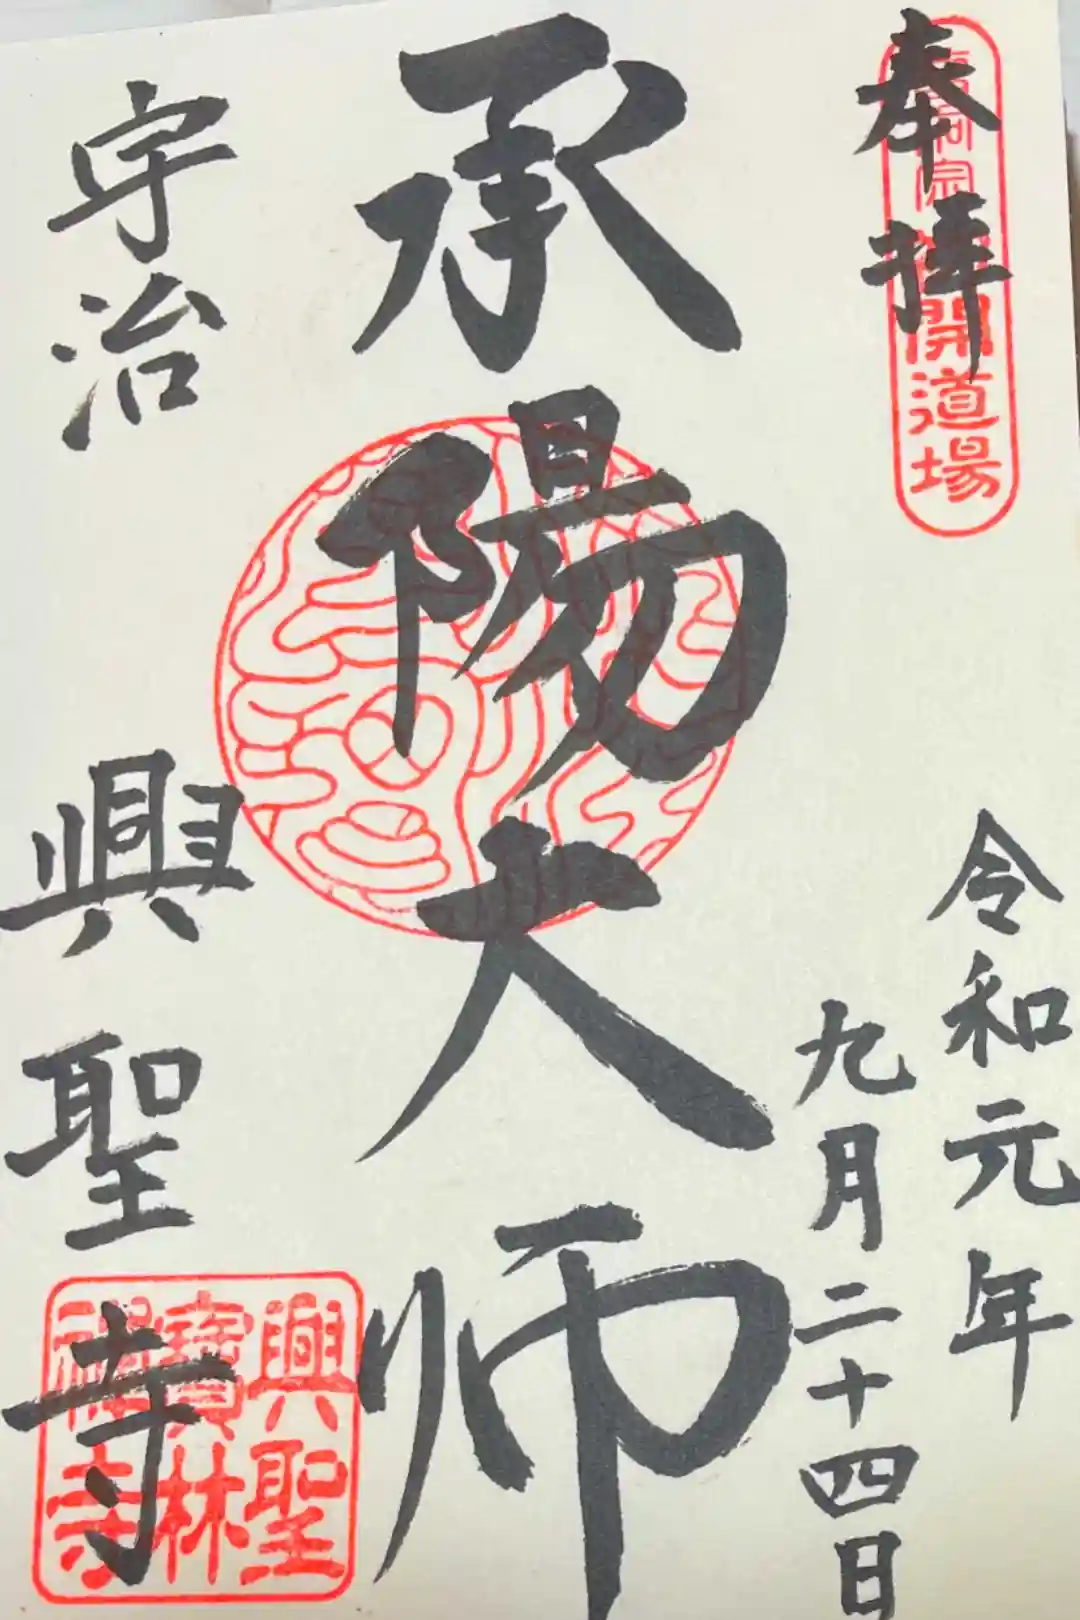 奉拝
曹洞宗 初開道場
令和元年
九月二十四日
承陽大師
宇治
興聖寺
興聖
寶林
禅寺